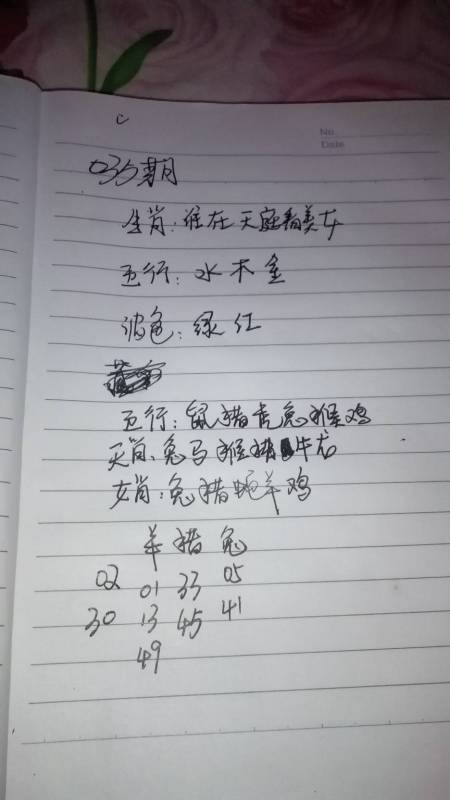 No.
Date
035期
生肖:谁在天庭看美女
五行:水木金
波色:绿红
五行:鼠猪虎兔猴鸡
天肖:兔马猴猪牛龙
女肖:兔猪蛇羊鸡
羊猪兔
02 01 33 05
30 13 45 41
49